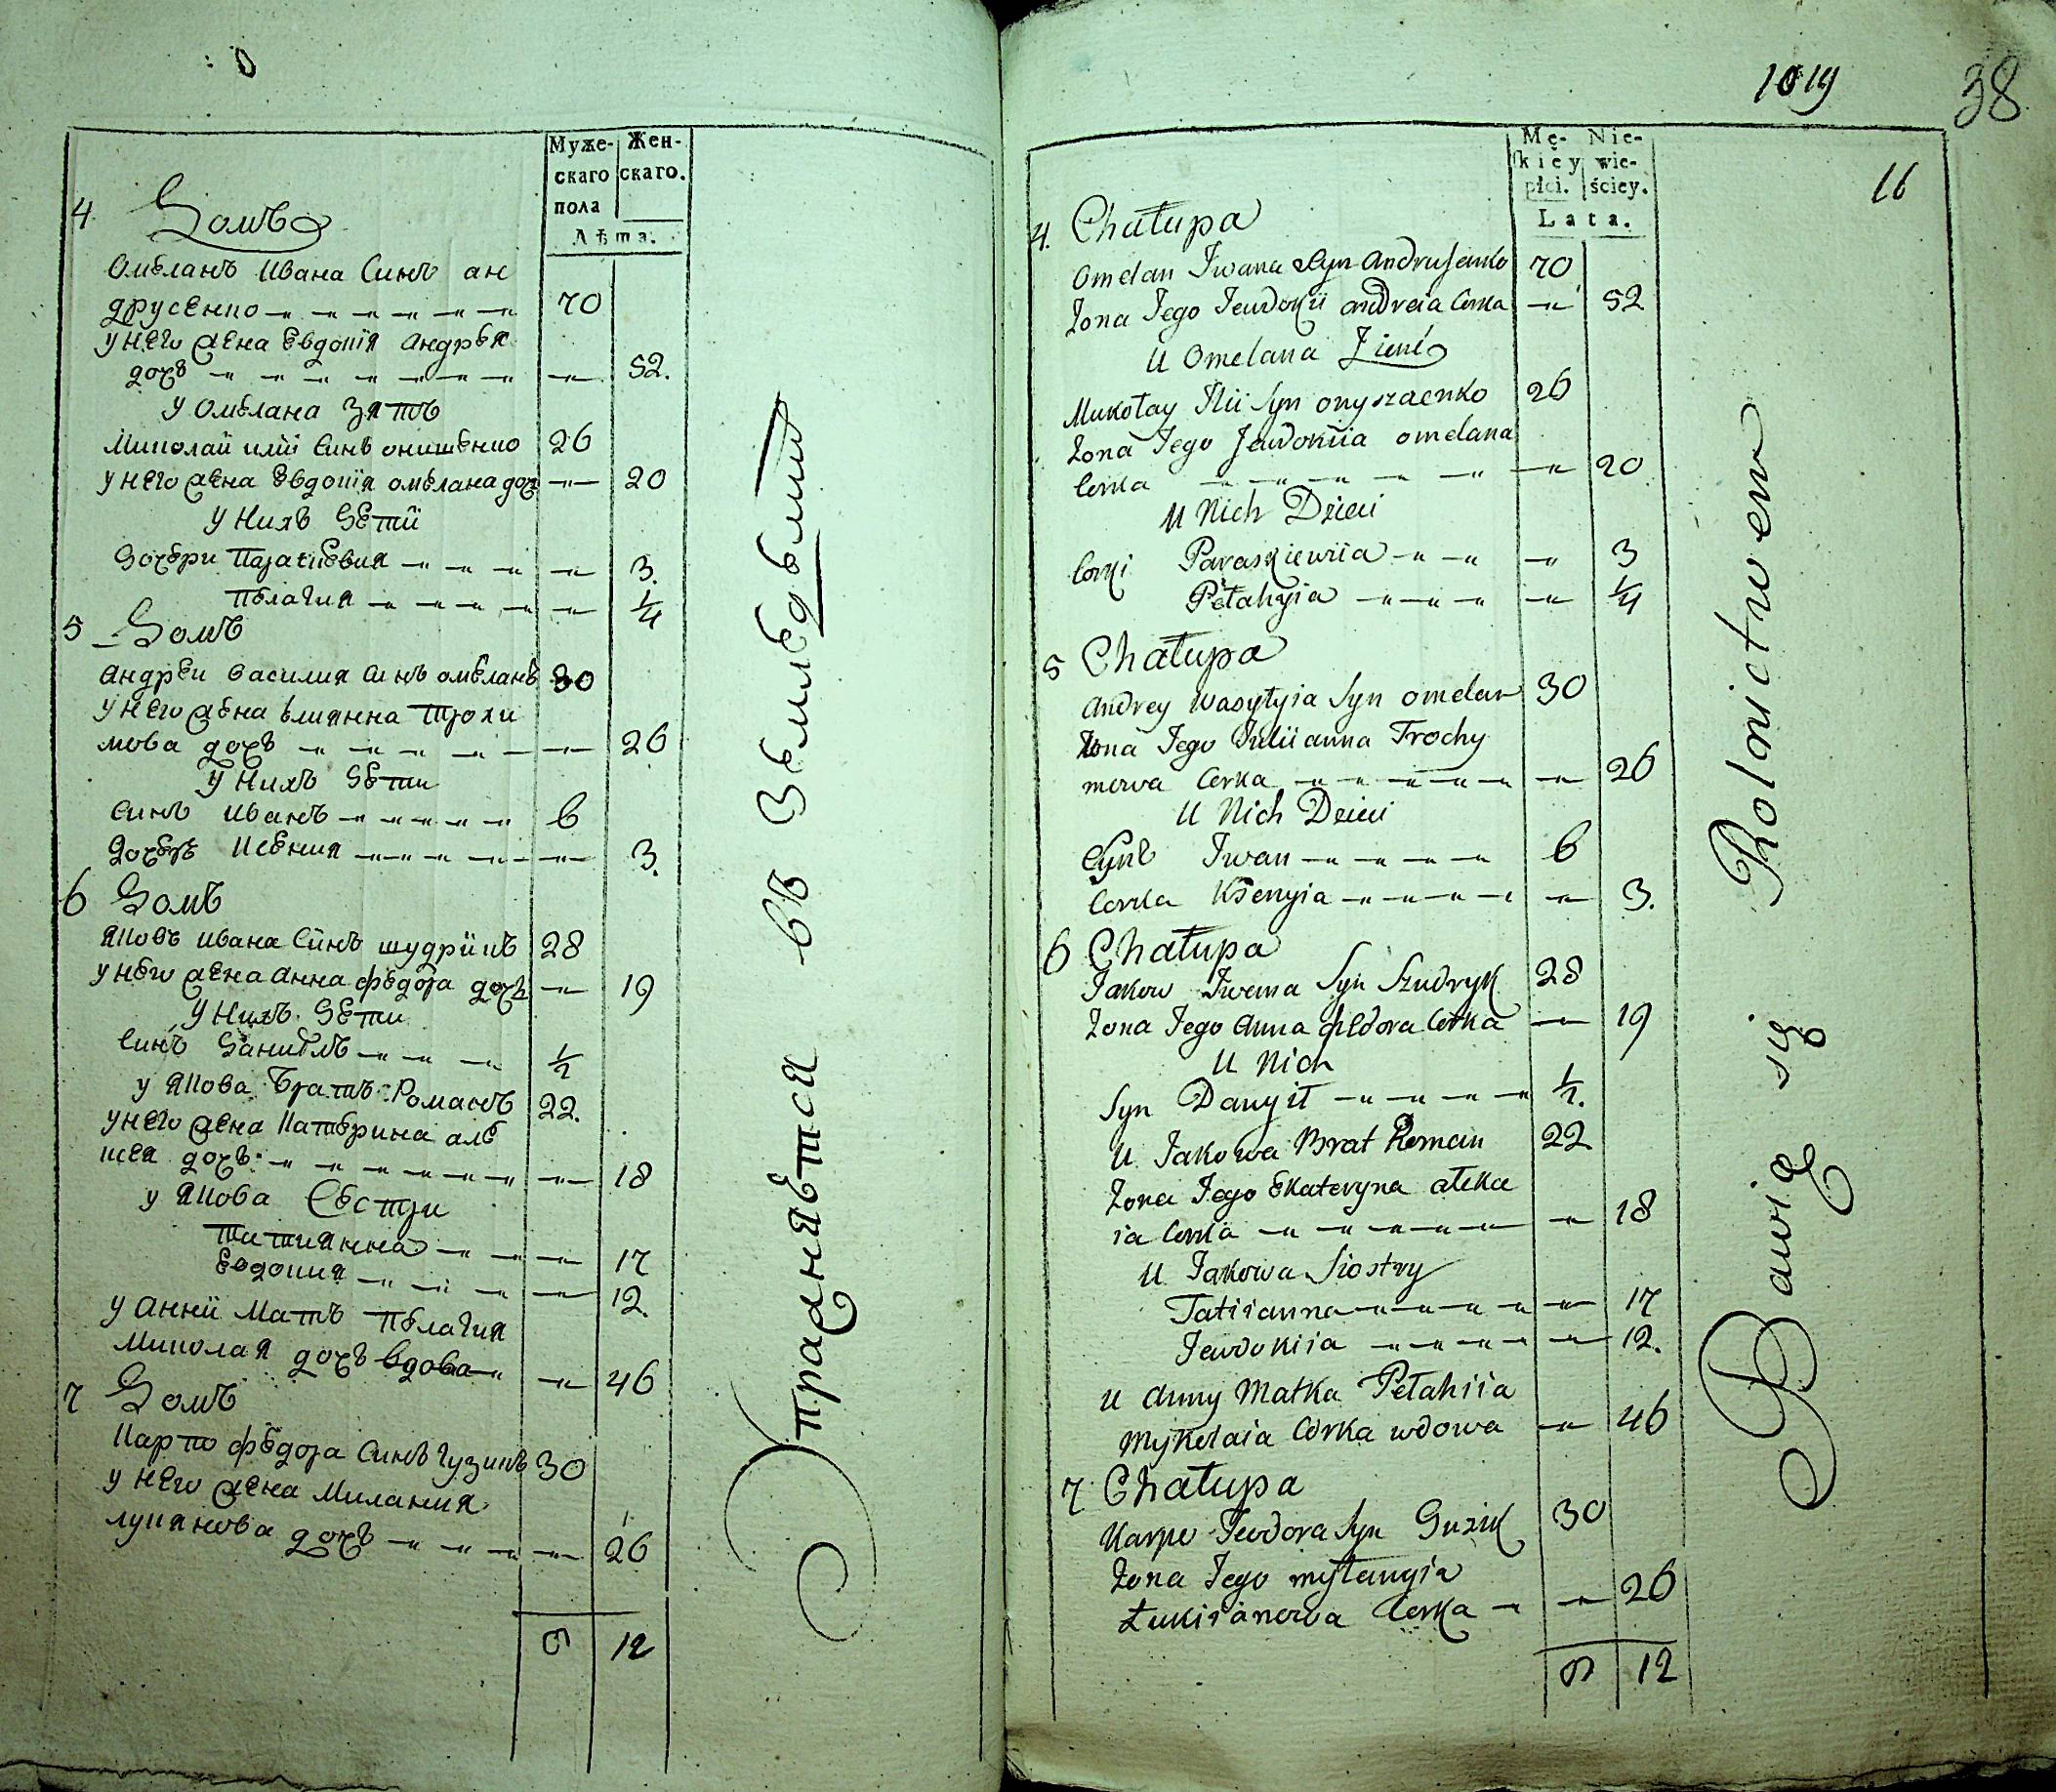 : 0
Муже- Жен-
скаго скаго.
пола
Лѣта.
4 Домъ
Омелянъ Ивана Синъ ан
друсенко 70
у него жена Евдокія андрея
дочъ 52.
У Омеляна Зять
Миколай иліи Синъ онишенко 26
у него жена Евдокія омеляна доч 20
У Нихъ Дети
Дочери Параскевия 3.
Пелагия 1/4
5 Домъ
андреи василия синъ омелянъ 30
у него жена Улиянна трохи
мова дочъ 26
У Нихъ Дети
Синъ Иванъ 6
Дочерь Ксения 3.
6 Домъ
Яковъ Ивана Синъ шудрикъ 28
у него жена Анна федора дочъ 19
У Нихъ Дети
Синъ Данилъ 1/2
у Якова Братъ Романъ 22.
у него жена Катерина але
ксея дочъ 18
у Якова Сестри
Татиянна 17
Евдокия 12.
у Анни Мать Пелагия
Миколая дочъ вдова 46
7 Домъ
Карпо федора Синъ гузикъ 30
у него жена Милания
лукянова дочъ 26
9 12
Упражняется въ Земледѣлии
1019
38
16
Mę- Nie-
skiey wie-
płci. ściey.
Lata.
4. Chałupa
Omelan Iwana Syn Andrusenko 70
Zona Jego Jewdokii andreia Corka 52
U Omelana Zienć
Mukołay Ilii Syn onyszaenko 26
Zona Jego Jewdokiia omelana
Corka 20
U Nich Dzieci
Corki Paraskiewiia 3
Pełahyia 1/4
5 Chałupa
Andrey Wasyłyia Syn omelan 30
Zona Jego Juliianna Trochy
mowa Corka 26
U Nich Dzieci
Syn Iwan 6
Corka Ksenyia 3.
6 Chałupa
Jakow Iwana Syn Szudryk 28
Zona Jego Anna fedora Corka 19
U Nich
Syn Danyił 1/2.
U Jakowa Brat Roman 22
Zona Jego Ekateryna ałeka
ia Corka 18
U Jakowa Siostry
Tatiianna 17
Jewdokiia 12.
U Anny Matka Pełahiia
Mykolaia Córka wdowa 46
7 Chałupa
Karpo Feodora Syn Guzik 30
Zona Jego myłanyia
Łukiianowa Corka 26
9 12
Bawią się Rolnictwem